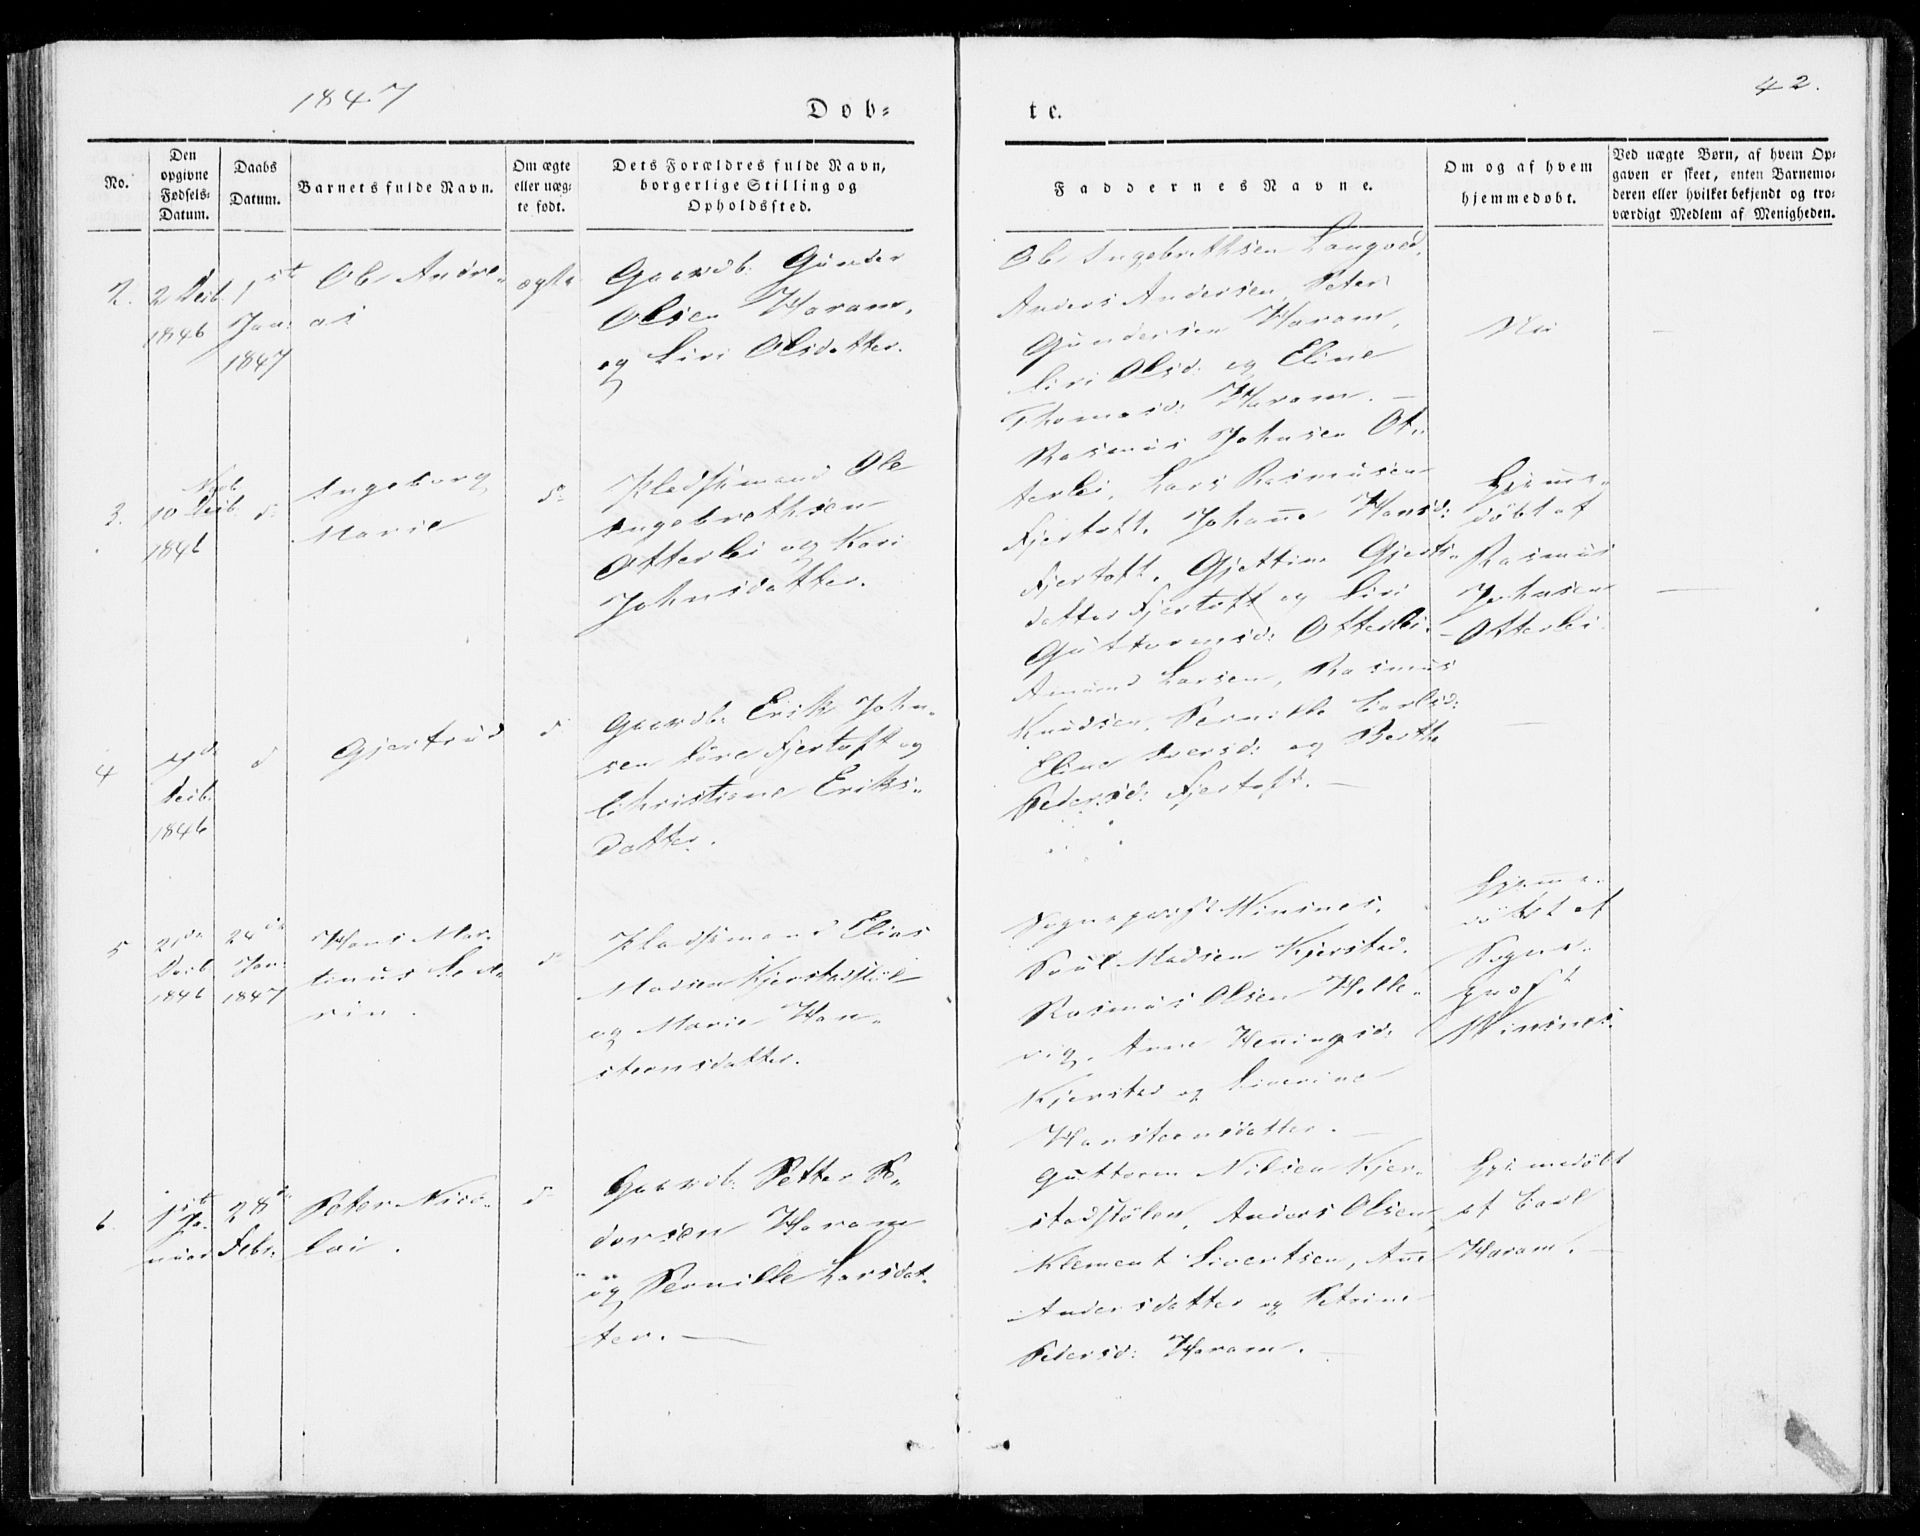 1847
42.
Dob-
te.
No.
Den
opgivne
Fødsels-
Datum.
Daabs
Datum.
Barnets fulde Navn.
Om ægte
eller uæg-
te født.
Dets Forældres fulde Navn,
borgerlige Stilling og
Opholdssted.
Faddernes Navne.
Om og af hvem
hjemmedøbt.
Ved uægte Børn, af hvem Op-
gaven er skeet, enten Barnemo-
deren eller hvilket bekjendt og tro-
værdigt Medlem af Menigheden.
2.
2 Desb.
1846
1ste
Jan:
1847
Ole Andre-
as
ægte
Gaardb: Gunder
Olsen Haram,
og Siri Olsdatter.
Ole Ingebrethsen Langved,
Anders Andersen, Peter
Gundersen Haram,
Siri Olsd: og Eline
Thomasd: Haram. —
Nei
—
3.
10 Novb.
1846
d:
Ingeborg
Marie
do
Pladsmand Ole
Ingebrethsen
Otterlei og Kari
Johnsdatter.
Rasmus Johnsen Ot-
terlei, Lars Rasmusen
Fjertoft, Johanne Hansd:
Fjertoft, Gjettine Gjerts-
datter Fjertoft og Siri
Guttormsd: Otterlei.
Hjemme-
døbt af
Rasmus
Johnsen
Otterlei.
—
4
Desb:
1846
d
Gjertrud
d
Gaardb: Erik John-
sen Søre Fjertoft og
Christiane Eriks-
datter.
Amund Larsen, Rasmus
Knudsen, Pernille Carlsd:
Eline Iversd: og Berthe
Pedersd: Fjertoft. —
—
5
21de
Desb
1846
24de
Jan:
1847
Hans Mar-
tinus Se-
rin.
d
Pladsmand Elias
Madsen Kjerstadstøl
og Marie Han-
steensdatter.
Sogneprest Winsnes,
Poul Madsen Kjerstad,
Rasmus Olsen Helle-
vig, Anne Henningsd:
Kjerstad og Siverine
Hansteensdatter. —
Hjemme-
døbt af
Sogne-
prest
Winsnes.
6.
1ste
Ja-
nuar
28de
Febr.
Peter Nico-
lai.
d
Gaardb: Petter Pe-
dersen Haram
og Pernille Larsdat-
ter. —
Guttorm Nilsen Kjer-
stadstølen, Anders Olsen,
Klement Sivertsen, Anne
Andersdatter og Petrine
Pedersd: Haram. —
Hjemmedøbt
af Carl
Haram. —